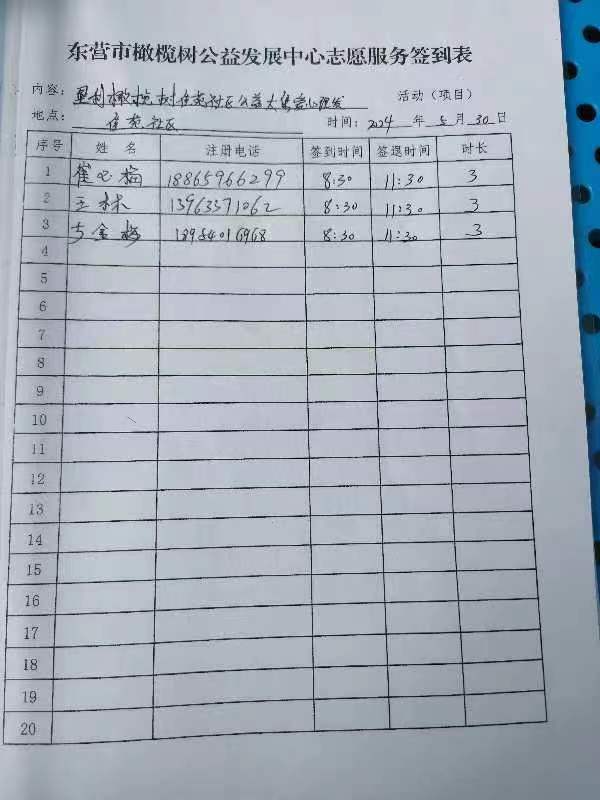 东营市橄榄树公益发展中心志愿服务签到表
内容：垦利橄榄树佳苑社区公益大集爱心理发 活动（项目）
地点： 佳苑社区 时间：2024 年 5 月 30 日
序号 姓 名 注册电话 签到时间 签退时间 时长
1 崔 梅 18865966299 8:30 11:30 3
2 王林 13963371062 8:30 11:30 3
3 金梅 18954016968 8:30 11:30 3
4
5
6
7
8
9
10
11
12
13
14
15
16
17
18
19
20